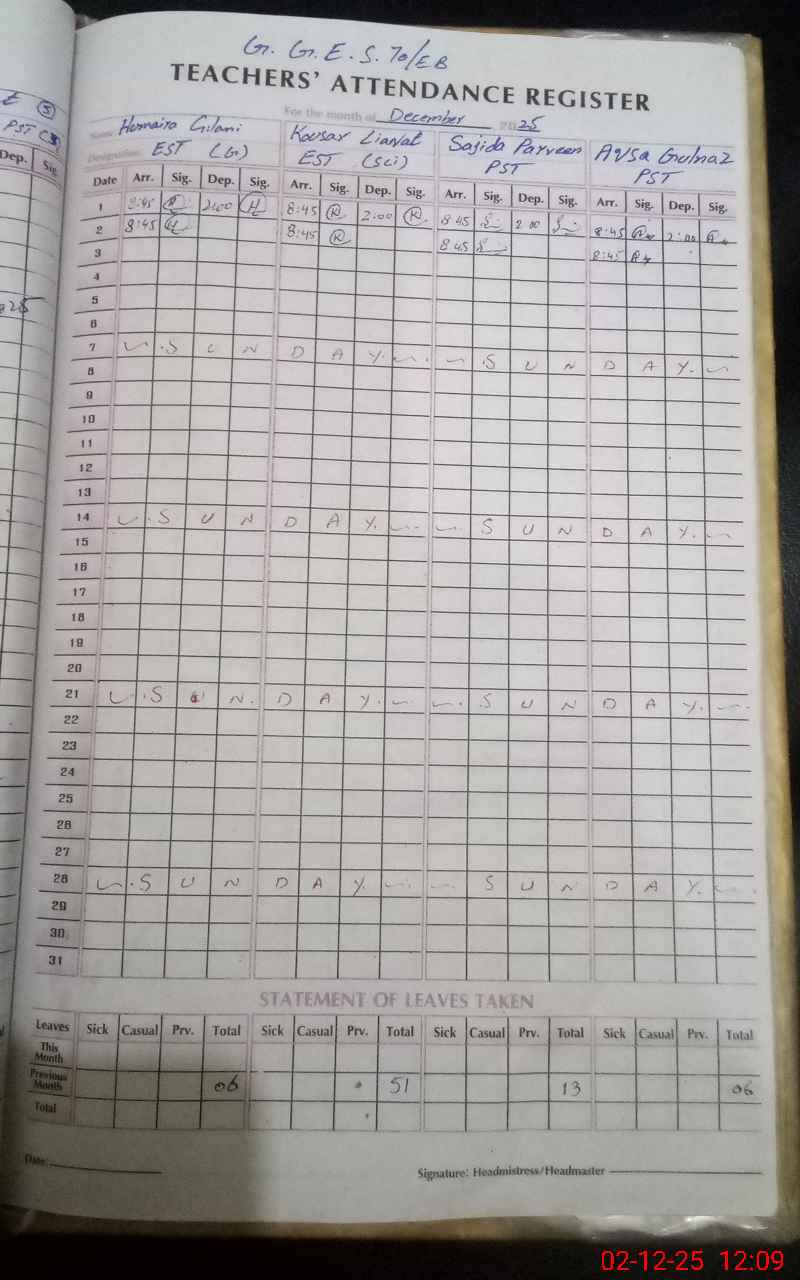 G. G. E. S. 70/EB
TEACHERS' ATTENDANCE REGISTER
For the month of December 2025
Name Humaira Gilani Kousar Liaqat Sajida Parveen Aqsa Gulnaz
Designation EST (G) EST (Sci) PST PST
Date Arr. Sig. Dep. Sig. Arr. Sig. Dep. Sig. Arr. Sig. Dep. Sig. Arr. Sig. Dep. Sig.
1 8:45 H 2:00 H 8:45 R 2:00 R 8 45 2 00 8:45 2:00
2 8:45 H 8:45 R 8 45 8:45
3
4
5
6
7 S U N D A Y. S U N D A Y.
8
9
10
11
12
13
14 S U N D A Y. S U N D A Y.
15
16
17
18
19
20
21 S U N. D A Y. S U N D A Y.
22
23
24
25
26
27
28 S U N D A Y. S U N D A Y.
29
30
31
STATEMENT OF LEAVES TAKEN
Leaves Sick Casual Prv. Total Sick Casual Prv. Total Sick Casual Prv. Total Sick Casual Prv. Total
This Month
Previous Month 06 51 13 06
Total
Date:
Signature: Headmistress/Headmaster
PST
Dep. Sig.
02-12-25 12:09